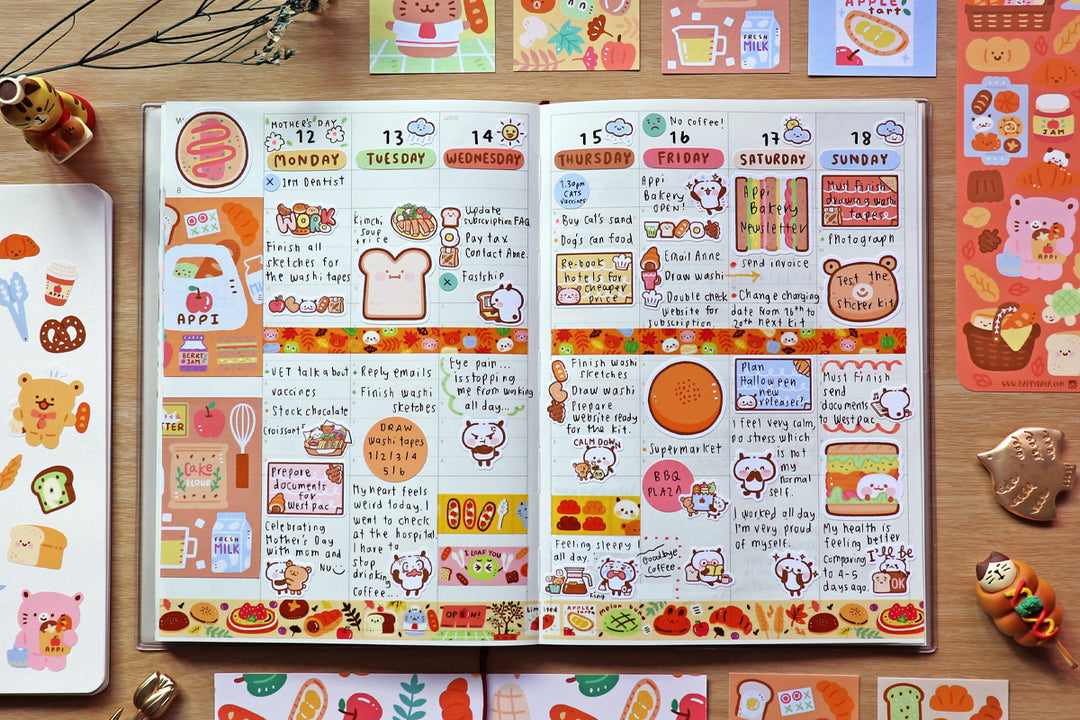 APPLE
tart
FRESH
MILK
JAM
APPI
www.HAPPYDAYA.COM
MOTHER'S DAY
12
MONDAY
x 1PM Dentist
WORK
Finish all
sketches for
the washi tapes
VET talk about
vaccines
Stock chocolate
croissants
Prepare
documents
for
Westpac
Celebrating
Mother's Day
with mom and
Nu
13
TUESDAY
Kimchi
soup
+ rice
Reply emails
Finish washi
sketches
DRAW
washi tapes
1/2/3/4
5/6
My heart feels
weird today. I
went to check
at the hospital
I have to
stop
drinking
coffee...
14
WEDNESDAY
update
subscription FAQ
Pay tax
Contact Anne.
x Fastship
Eye pain...
is stopping
me from working
all day...
I LOAF YOU
15
THURSDAY
1.30pm
CATS
vaccines
Buy Cat's sand
Dog's can food
Re-book
hotels for
cheaper
price
Finish washi
sketches
Draw washi
Prepare
website ready
for the kit.
CALM DOWN
Feeling sleepy
all day.
No coffee!
16
FRIDAY
Appi
Bakery
OPEN!
Email Anne.
Draw washi
Double check
website for
subscription.
Supermarket
BBQ
PLAZA
Goodbye
Coffee
17
SATURDAY
Appi
Bakery
Newsletter
send invoice
Change charging
date from 16th to
20th next kit
Plan
Halloween
new
releaser?
I feel very calm,
no stress which
is not
my
normal
self.
I worked all day
I'm very proud
of myself.
18
SUNDAY
Must finish
drawing washi
tapes
Photograph
Test the
sticker kit
Must finish
send
documents
to Westpac
My health is
feeling better
Comparing
to 4-5
days ago.
I'll be
OK
APPI
BERRY
JAM
BUTTER
Cake
FLOUR
FRESH
MILK
OPEN!
APPLE
tart
melon
APPI